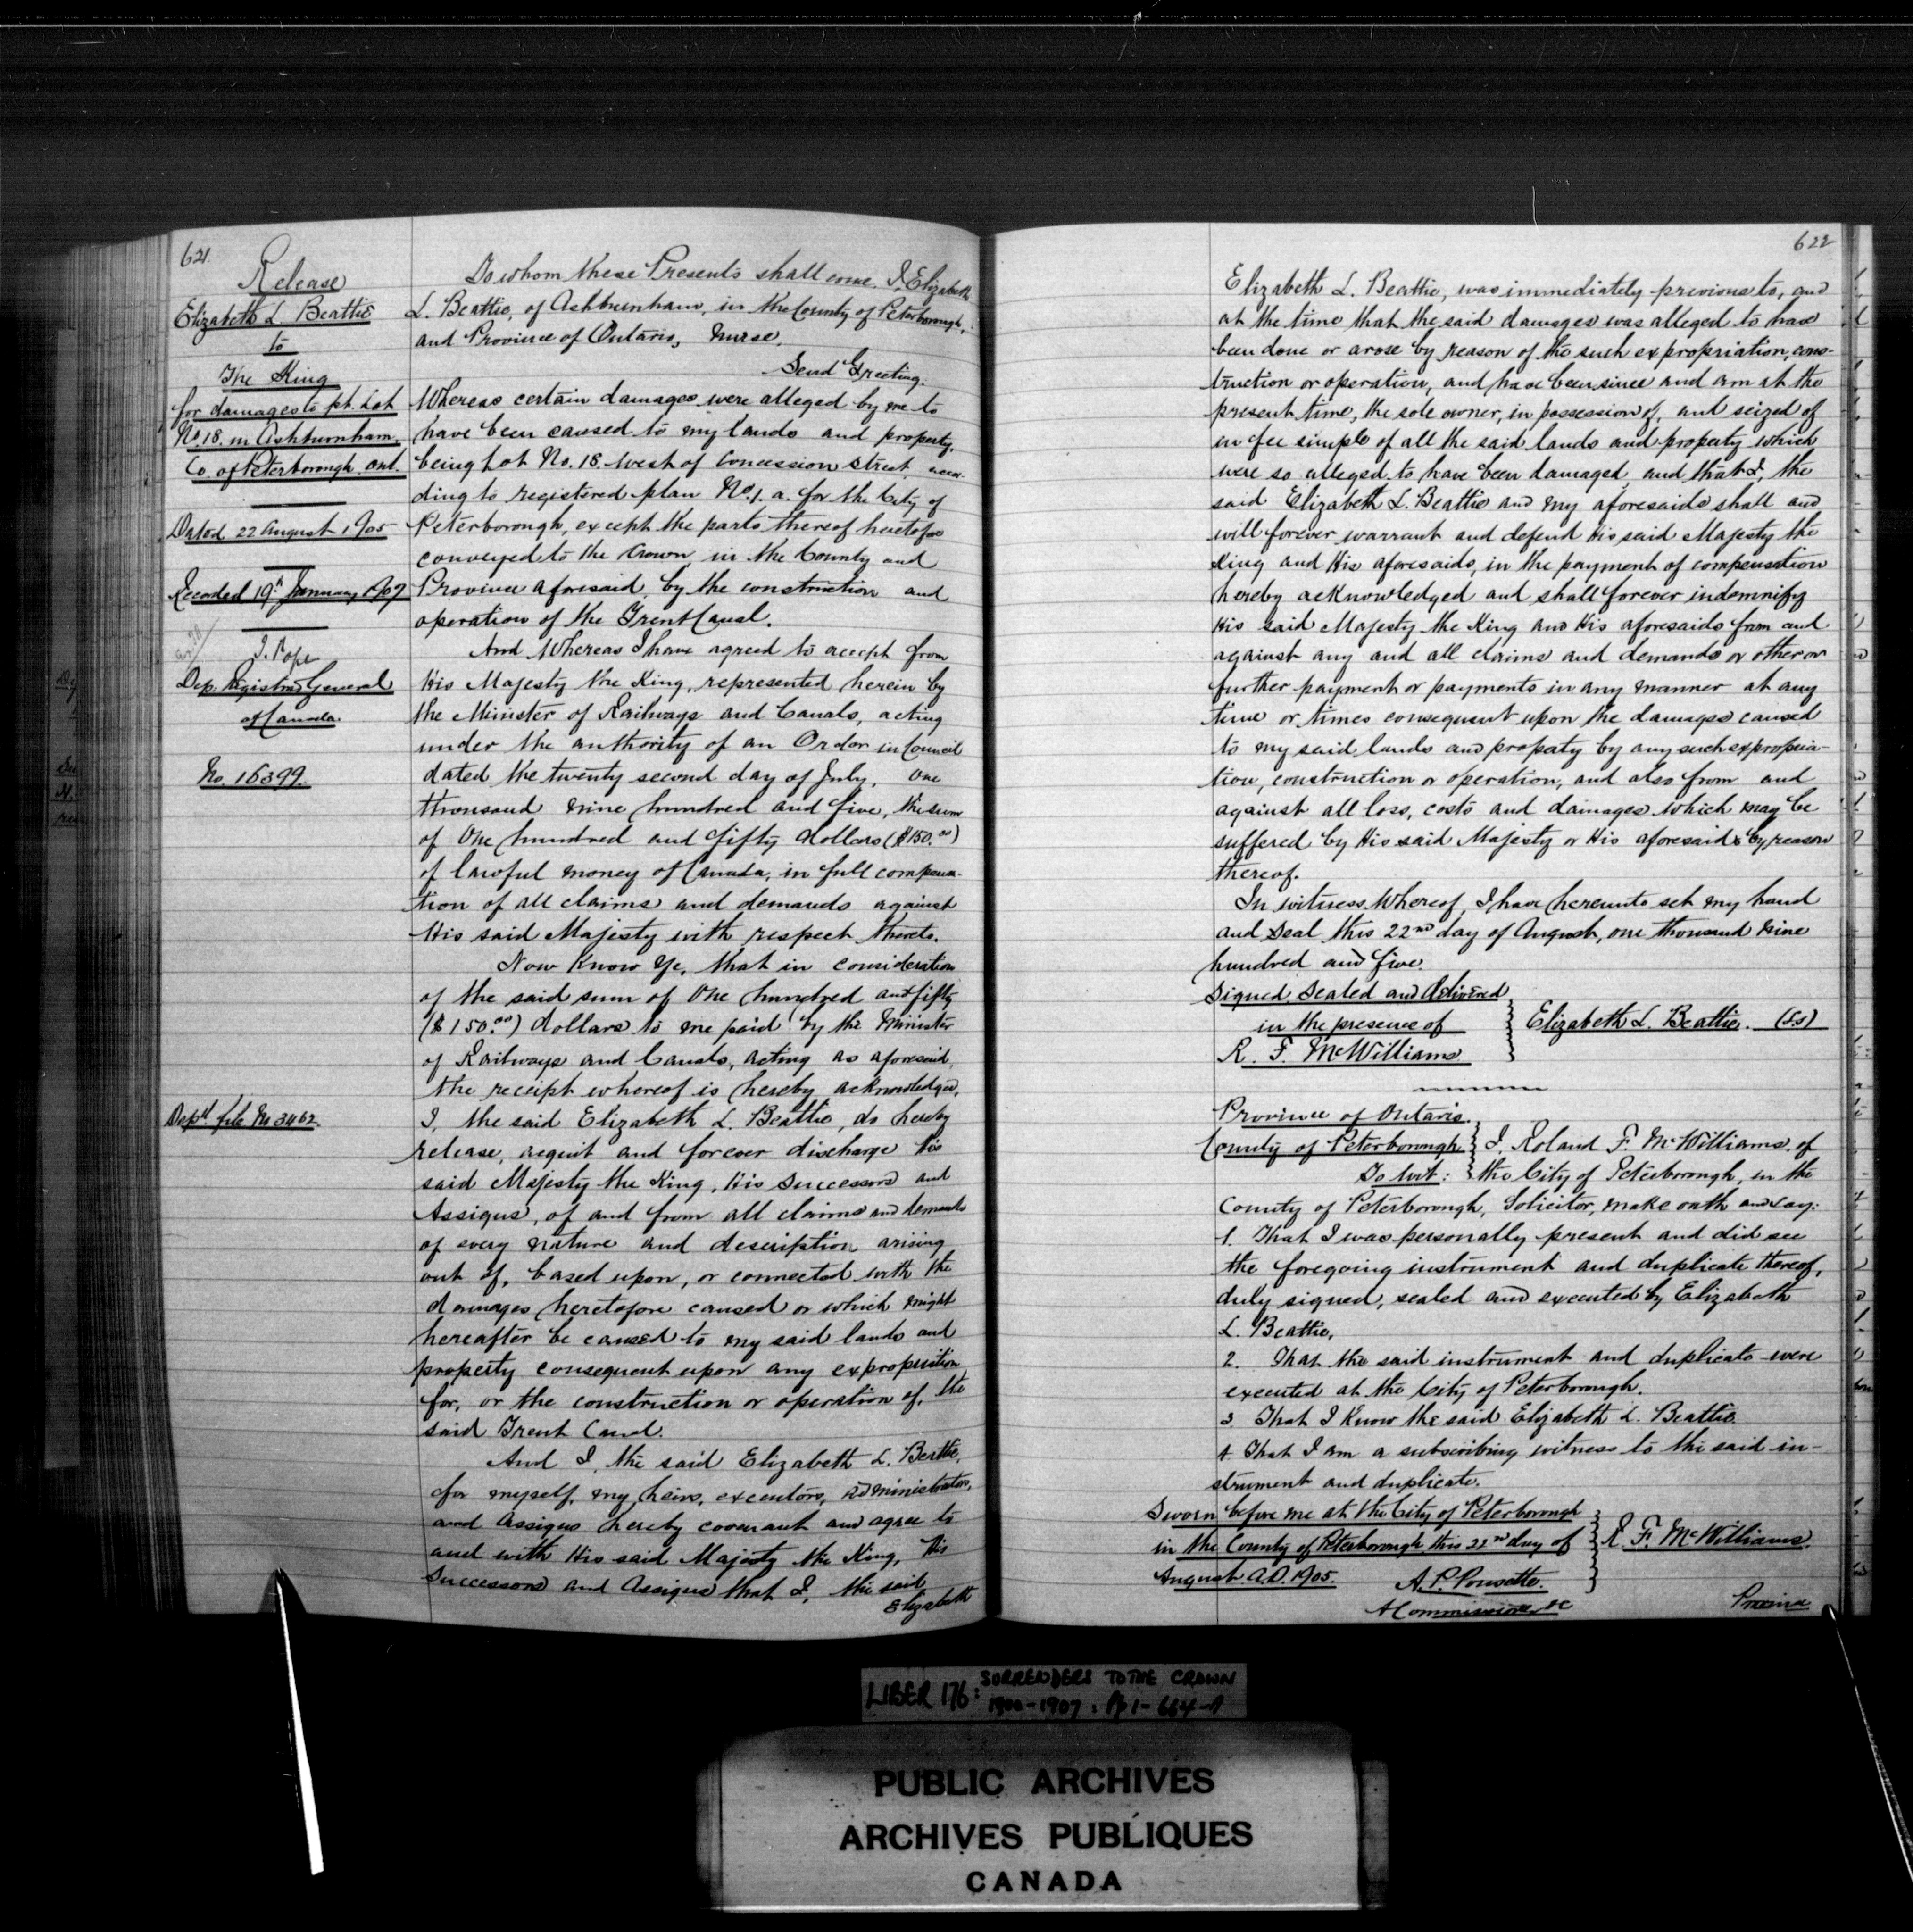 621.
Release
Elizabeth L Beattie
to
The King
for damages to pt. Lot
No 18. in Ashburnham.
Co. of Peterborough. Ont.
Dated 22 August 1905
Recorded 19th January 1907
J. Pope
Dep. Registrar General
of Canada.
No. 16399.
Dept file No 3462.
To whom these Presents shall come. I, Elizabeth
L. Beattie, of Ashburnham, in the County of Peterborough,
and Province of Ontario, nurse,
Send Greeting.
Whereas certain damages were alleged by me to
have been caused to my lands and property,
being Lot No. 18. west of Concession Street, accor-
ding to registered plan No. 1. a. for the City of
Peterborough, except the parts thereof heretofore
conveyed to the Crown, in the County and
Province aforesaid, by the construction and
operation of the Trent Canal.
And Whereas I have agreed to accept from
His Majesty the King, represented herein by
the Minister of Railways and Canals, acting
under the authority of an Order in Council
dated the twenty second day of July, one
thousand nine hundred and five, the sum
of One hundred and fifty dollars ($150.00)
of lawful money of Canada, in full compensa-
tion of all claims and demands against
His said Majesty with respect thereto.
Now Know Ye, that in consideration
of the said sum of One hundred and fifty
($150.00) dollars to me paid by the Minister
of Railways and Canals, acting as aforesaid,
the receipt whereof is hereby acknowledged,
I, the said Elizabeth L. Beattie, do hereby
release, acquit and forever discharge His
said Majesty the King, His Successors and
Assigns, of and from all claims and demands
of every nature and description arising
out of, based upon, or connected with the
damages heretofore caused or which might
hereafter be caused to my said lands and
property consequent upon any expropriation
for, or the construction or operation of, the
said Trent Canal.
And I, the said Elizabeth L. Beattie,
for myself, my heirs, executors, administrators,
and assigns hereby covenant and agree to
and with His said Majesty the King, His
Successors and Assigns that I, the said
Elizabeth
622
Elizabeth L. Beattie, was immediately previous to, and
at the time that the said damages was alleged to have
been done or arose by reason of the such expropriation, cons-
truction or operation, and have been since and am at the
present time, the sole owner, in possession of, and seized of
in fee simple of all the said lands and property which
were so alleged to have been damaged, and that I, the
said Elizabeth L. Beattie and my aforesaids shall and
will forever warrant and defend His said Majesty the
King and His aforesaids, in the payment of compensation
hereby acknowledged and shall forever indemnify
His said Majesty the King and His aforesaids from and
against any and all claims and demands or other or
further payment or payments in any manner at any
time or times consequent upon the damages caused
to my said lands and property by any such expropria-
tion, construction or operation, and also from and
against all loss, costs and damages which may be
suffered by His said Majesty or His aforesaids by reason
thereof.
In witness Whereof, I have hereunto set my hand
and Seal this 22nd day of August, one thousand nine
hundred and five.
Signed Sealed and Delivered
in the presence of
R. F. McWilliams
Elizabeth L. Beattie. (L.S)
Province of Ontario.
County of Peterborough
To wit:
I, Roland F. McWilliams, of
the City of Peterborough, in the
County of Peterborough, Solicitor, make oath and say:
1. That I was personally present and did see
the foregoing instrument and duplicate thereof,
duly signed, sealed and executed by Elizabeth
L. Beattie,
2. That the said instrument and duplicate were
executed at the City of Peterborough.
3 That I Know the said Elizabeth L. Beattie.
4 That I am a subscribing witness to the said in-
strument and duplicate.
Sworn before me at the City of Peterborough
in the County of Peterborough this 22nd day of
August. A.D. 1905.
R. F. McWilliams.
A. P. Poussette.
A Commissioner &c
Province
LIBER 176: SURRENDERS TO THE CROWN
1900-1907: Pp 1-664-A
PUBLIC ARCHIVES
ARCHIVES PUBLIQUES
CANADA